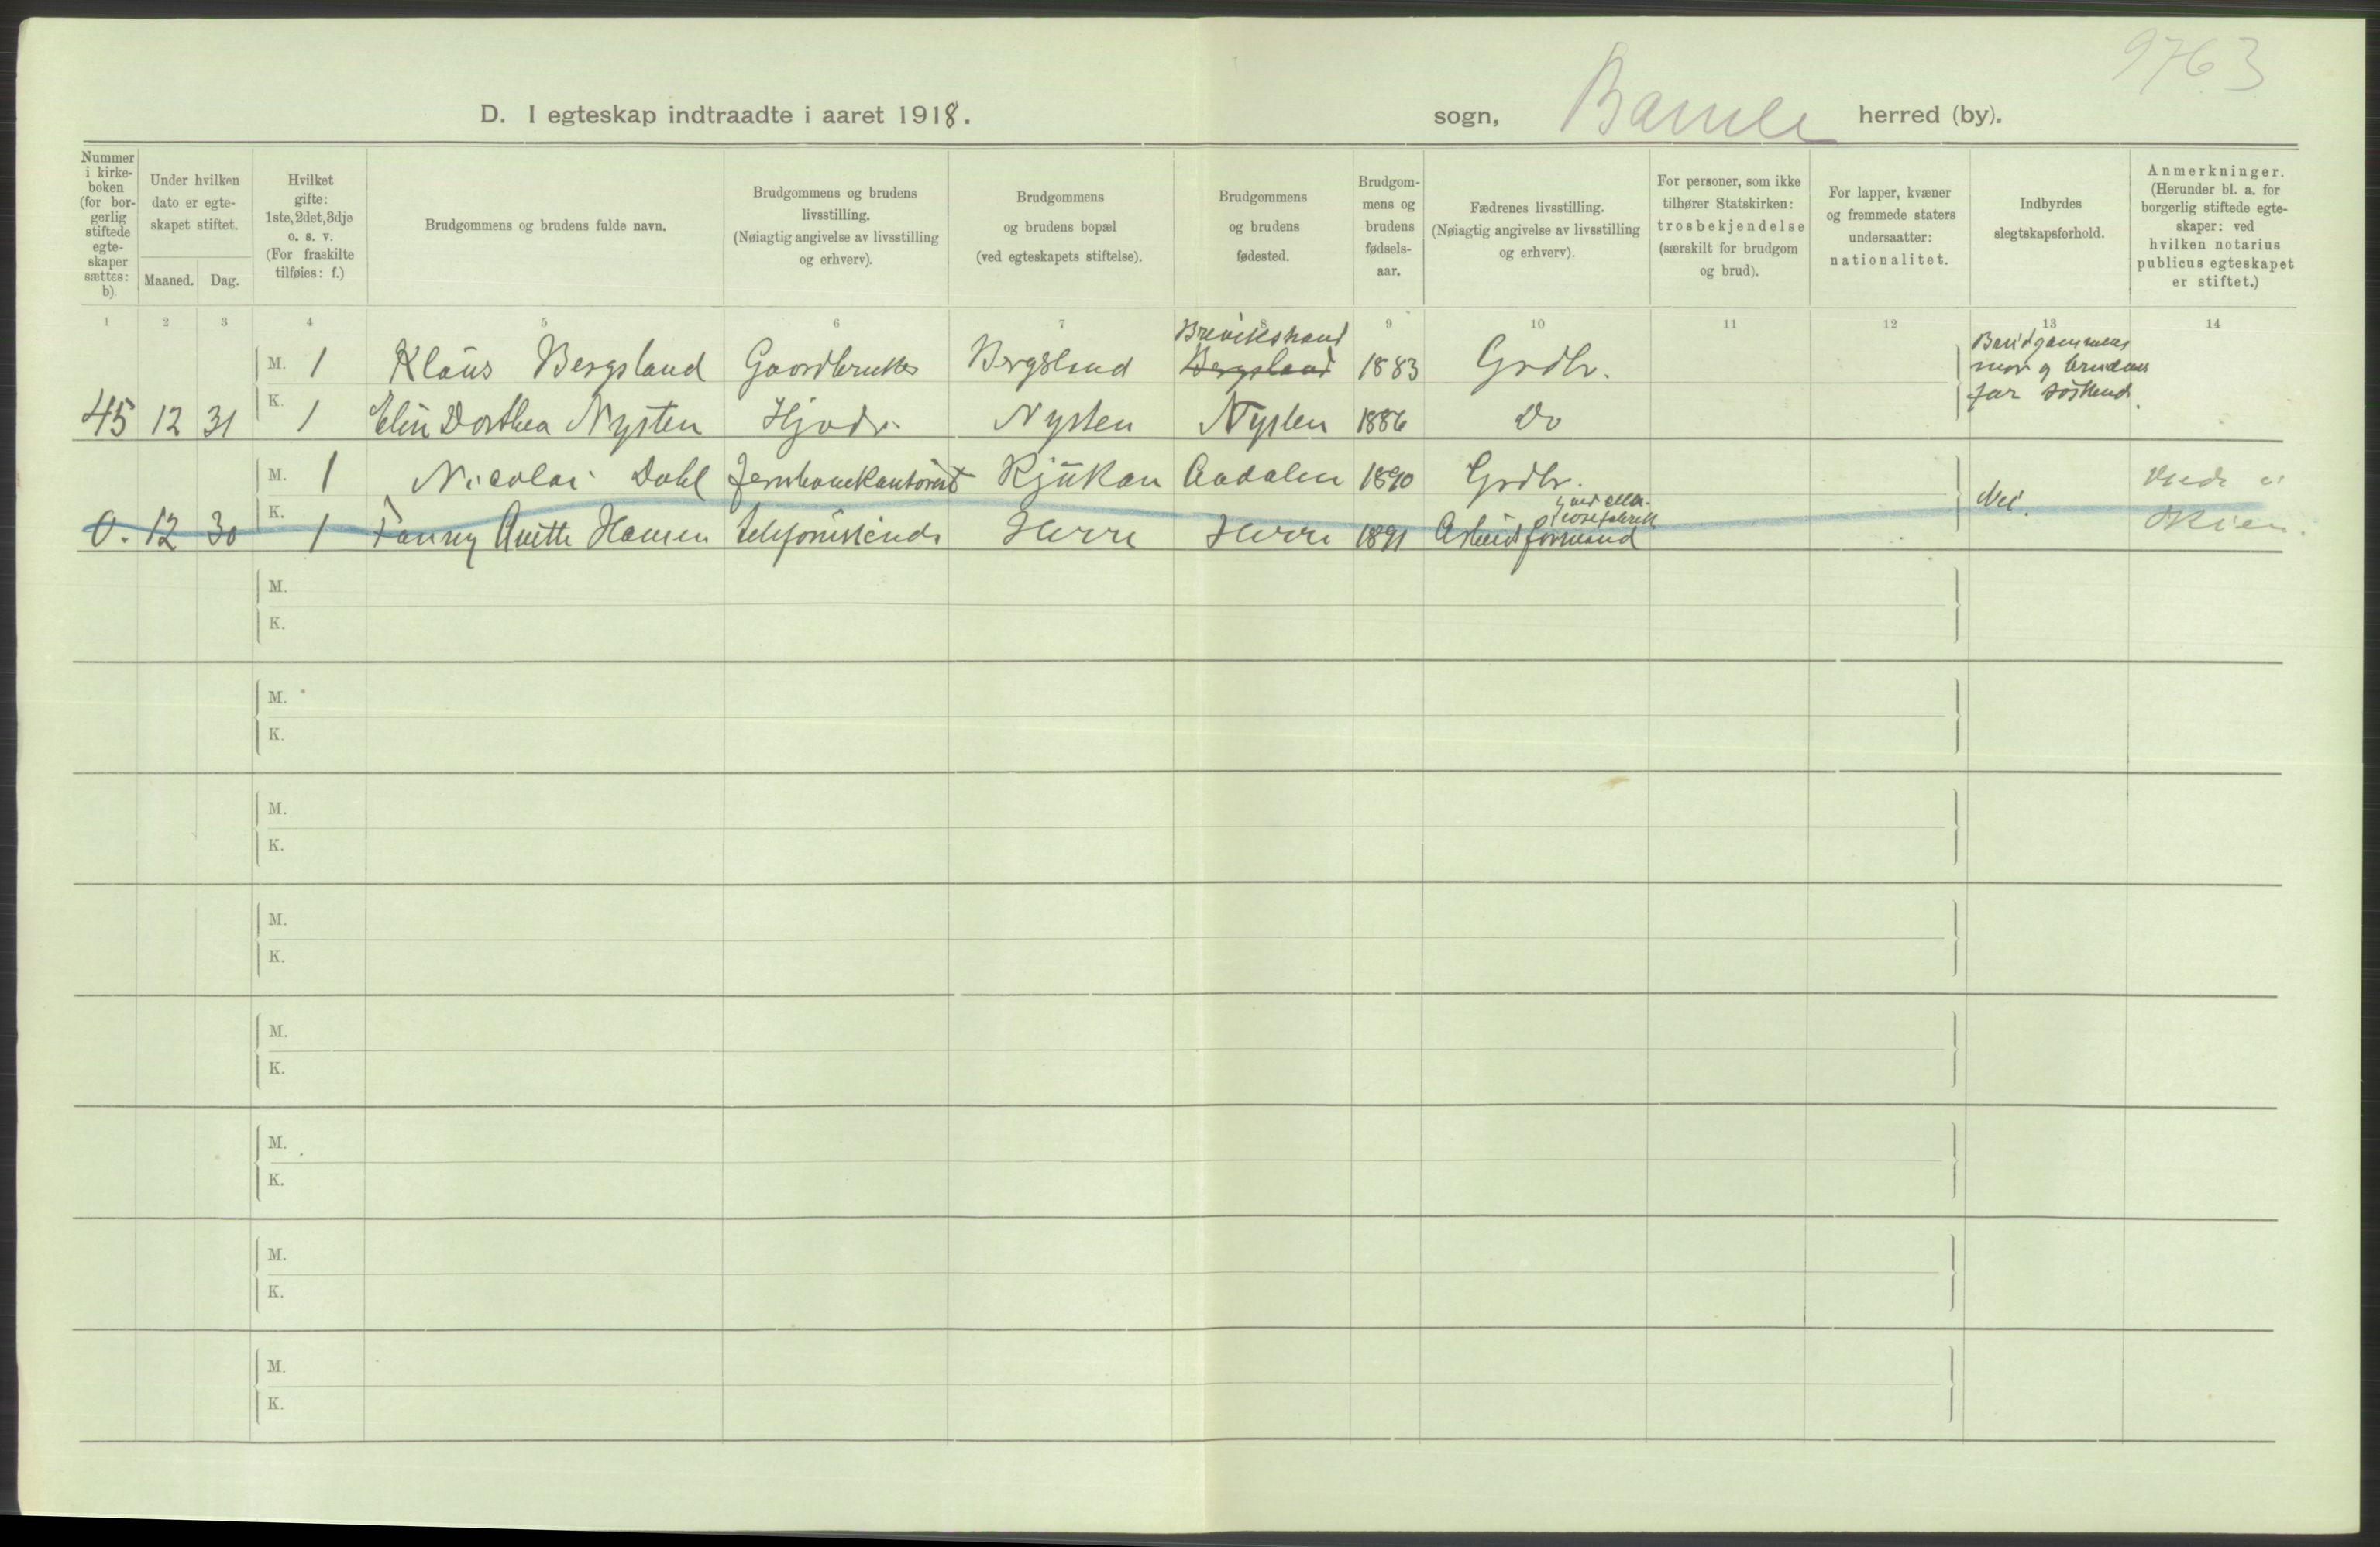 9763
D. I egteskap indtraadte i aaret 1918.
sogn, Bamle herred (by).
Nummer
i kirke-
boken
(for bor-
gerlig
stiftede
egte-
skaper
sættes:
b).
Under hvilken
dato er egte-
skapet stiftet.
Maaned. Dag.
Hvilket
gifte:
1ste, 2det, 3dje
o. s. v.
(For fraskilte
tilføies: f.)
Brudgommens og brudens fulde navn.
Brudgommens og brudens
livsstilling.
(Nøiagtig angivelse av livsstilling
og erhverv).
Brudgommens
og brudens bopæl
(ved egteskapets stiftelse).
Brudgommens
og brudens
fødested.
Brudgom-
mens og
brudens
fødsels-
aar.
Fædrenes livsstilling.
(Nøiagtig angivelse av livsstilling
og erhverv).
For personer, som ikke
tilhører Statskirken:
trosbekjendelse
(særskilt for brudgom
og brud).
For lapper, kvæner
og fremmede staters
undersaatter:
nationalitet.
Indbyrdes
slegtskapsforhold.
Anmerkninger.
(Herunder bl. a. for
borgerlig stiftede egte-
skaper: ved
hvilken notarius
publicus egteskapet
er stiftet.)
1 2 3 4 5 6 7 8 9 10 11 12 13 14
Brevikstrand
M. 1 Klaus Bergsland Gaardbruker Bergsland Bergsland 1883 Grdbr.
Brudgommens
mor og brudens
far søskend.
45 12 31 K. 1 Elin Dorthea Nysten Hjvdr. Nysten Nysten 1886 Do
M. 1 Nicolai Dahl Jernbanekontorist Rjukan Aadalen 1890 Grdbr.
Nei.
Viede i
Skien.
ved cellu-
losefabrik
0. 12 30 K. 1 Fanny Anette Hansen telefonistinde Herre Herre 1891 Arbeidsformand
M.
K.
M.
K.
M.
K.
M.
K.
M.
K.
M.
K.
M.
K.
M.
K.